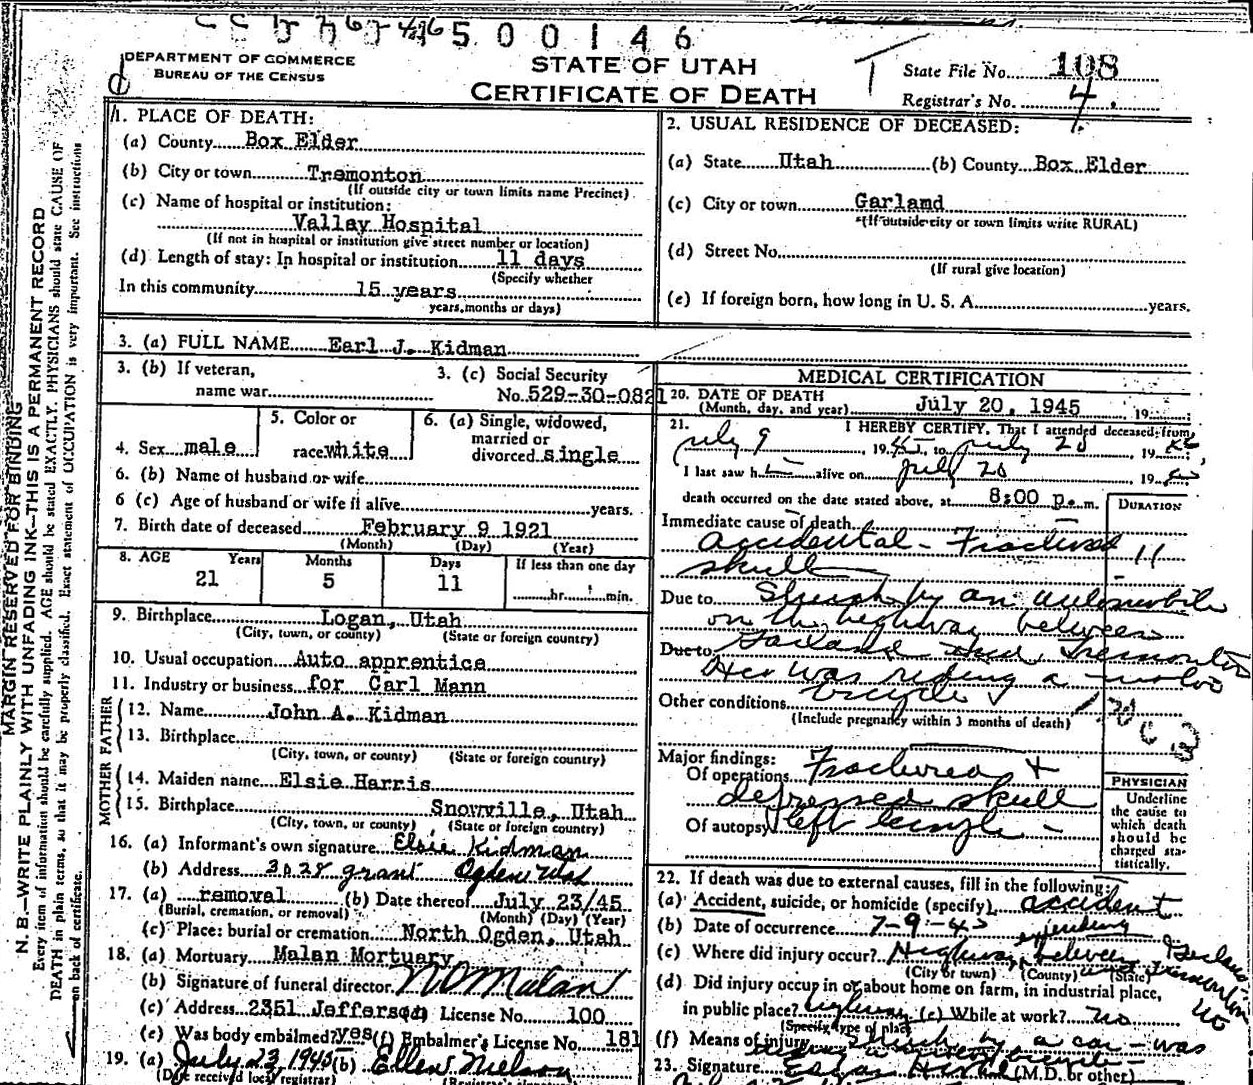 500146
DEPARTMENT OF COMMERCE
BUREAU OF THE CENSUS
STATE OF UTAH
CERTIFICATE OF DEATH
State File No. 108
Registrar's No. 4.
MARGIN RESERVED FOR BINDING
N. B.—WRITE PLAINLY WITH UNFADING INK—THIS IS A PERMANENT RECORD
Every item of information should be carefully supplied. AGE should be stated EXACTLY. PHYSICIANS should state CAUSE OF
DEATH in plain terms, so that it may be properly classified. Exact statement of OCCUPATION is very important. See instructions
on back of certificate.
1. PLACE OF DEATH:
(a) County Box Elder
(b) City or town Tremonton
(If outside city or town limits name Precinct)
(c) Name of hospital or institution:
Valley Hospital
(If not in hospital or institution give street number or location)
(d) Length of stay: In hospital or institution 11 days
(Specify whether
In this community 15 years
years, months or days)
2. USUAL RESIDENCE OF DECEASED:
(a) State Utah (b) County Box Elder
(c) City or town Garland
(If outside city or town limits write RURAL)
(d) Street No.
(If rural give location)
(e) If foreign born, how long in U. S. A. years.
3. (a) FULL NAME Earl J. Kidman
3. (b) If veteran,
name war
3. (c) Social Security
No. 529-30-0821
4. Sex male
5. Color or
race white
6. (a) Single, widowed,
married or
divorced single
6. (b) Name of husband or wife
6 (c) Age of husband or wife if alive years.
7. Birth date of deceased February 9 1921
(Month) (Day) (Year)
8. AGE Years Months Days If less than one day
21 5 11 hr. min.
9. Birthplace Logan, Utah
(City, town, or county) (State or foreign country)
10. Usual occupation Auto apprentice
11. Industry or business for Carl Mann
FATHER
12. Name John A. Kidman
13. Birthplace
(City, town, or county) (State or foreign country)
MOTHER
14. Maiden name Elsie Harris
15. Birthplace Snowville, Utah
(City, town, or county) (State or foreign country)
16. (a) Informant's own signature Elsie Kidman
(b) Address 3028 grant Ogden Utah
17. (a) removal (b) Date thereof July 23/45
(Burial, cremation, or removal) (Month) (Day) (Year)
(c) Place: burial or cremation North Ogden, Utah
18. (a) Mortuary Malan Mortuary
(b) Signature of funeral director Malan
(c) Address 2351 Jefferson License No. 100
(e) Was body embalmed? yes (f) Embalmer's License No. 181
19. (a) July 23, 1945 (b) Ellen Nielson
(Date received local registrar)
MEDICAL CERTIFICATION
20. DATE OF DEATH
(Month, day, and year) July 20, 1945 19
21. I HEREBY CERTIFY, That I attended deceased from
July 9, 1945, to July 20 19 45
I last saw h alive on July 20 19 45
death occurred on the date stated above, at 8:00 p. m.
DURATION
Immediate cause of death
accidental - Fractured 11
skull
Due to Struck by an automobile
on the highway between
Due to Garland and Tremonton
He was riding a motor
Other conditions bicycle
(Include pregnancy within 3 months of death)
Major findings:
Of operations Fractured +
depressed skull
Of autopsy left
PHYSICIAN
Underline
the cause to
which death
should be
charged sta-
tistically.
22. If death was due to external causes, fill in the following:
(a) Accident, suicide, or homicide (specify) accident
(b) Date of occurrence 7-9-45
(c) Where did injury occur? Highway between Garland and Tremonton
(City or town) (County) (State)
(d) Did injury occur in or about home on farm, in industrial place,
in public place? highway (e) While at work? no
(Specify type of place)
(f) Means of injury struck by a car - was
23. Signature (M.D. or other)